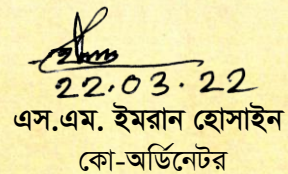 22.03.22
এস.এম. ইমরান হোসাইন
কো-অর্ডিনেটর